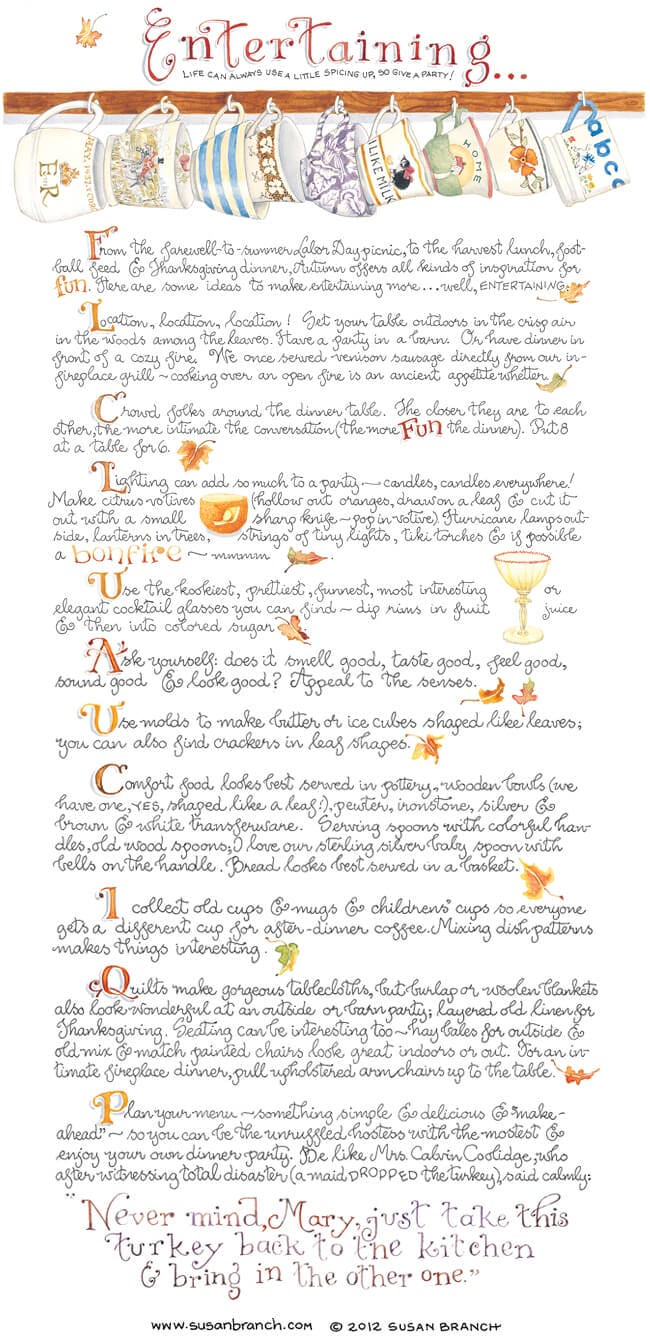 Entertaining...
LIFE CAN ALWAYS USE A LITTLE SPICING UP, SO GIVE A PARTY!
E II R MAY 1937 CORO
I LIKE MILK
HOME
abcc
From the farewell-to-summer Labor Day picnic, to the harvest lunch, foot-
ball feed & Thanksgiving dinner, Autumn offers all kinds of inspiration for
fun. Here are some ideas to make entertaining more...well, ENTERTAINING.
Location, location, location! Set your table outdoors in the crisp air
in the woods among the leaves. Have a party in a barn. Or have dinner in
front of a cozy fire. We once served venison sausage directly from our in-
fireplace grill ~ cooking over an open fire is an ancient appetite whetter.
Crowd folks around the dinner table. The closer they are to each
other, the more intimate the conversation (the more Fun the dinner). Put 8
at a table for 6.
Lighting can add so much to a party ~ candles, candles everywhere!
Make citrus votives (hollow out oranges, draw on a leaf & cut it
out with a small sharp knife ~ pop in votive). Hurricane lamps out-
side, lanterns in trees, strings of tiny lights, tiki torches & if possible
a bonfire ~ mmmm.
Use the kookiest, prettiest, funnest, most interesting or
elegant cocktail glasses you can find ~ dip rims in fruit juice
& then into colored sugar.
Ask yourself: does it smell good, taste good, feel good,
sound good & look good? Appeal to the senses.
Use molds to make butter or ice cubes shaped like leaves;
you can also find crackers in leaf shapes.
Comfort food looks best served in pottery, wooden bowls (we
have one, YES, shaped like a leaf!), pewter, ironstone, silver &
brown & white transferware. Serving spoons with colorful han-
dles, old wood spoons; I love our sterling silver baby spoon with
bells on the handle. Bread looks best served in a basket.
I collect old cups & mugs & childrens' cups so everyone
gets a different cup for after-dinner coffee. Mixing dish patterns
makes things interesting.
Quilts make gorgeous tablecloths, but burlap or woolen blankets
also look wonderful at an outside or barn party; layered old linen for
Thanksgiving. Seating can be interesting too ~ hay bales for outside &
old mix & match painted chairs look great indoors or out. For an in-
timate fireplace dinner, pull upholstered arm chairs up to the table.
Plan your menu ~ something simple & delicious & "make-
ahead" ~ so you can be the unruffled hostess with the mostest &
enjoy your own dinner party. Be like Mrs. Calvin Coolidge, who
after witnessing total disaster (a maid DROPPED the turkey), said calmly:
"Never mind, Mary, just take this
turkey back to the kitchen
& bring in the other one."
www.susanbranch.com © 2012 SUSAN BRANCH